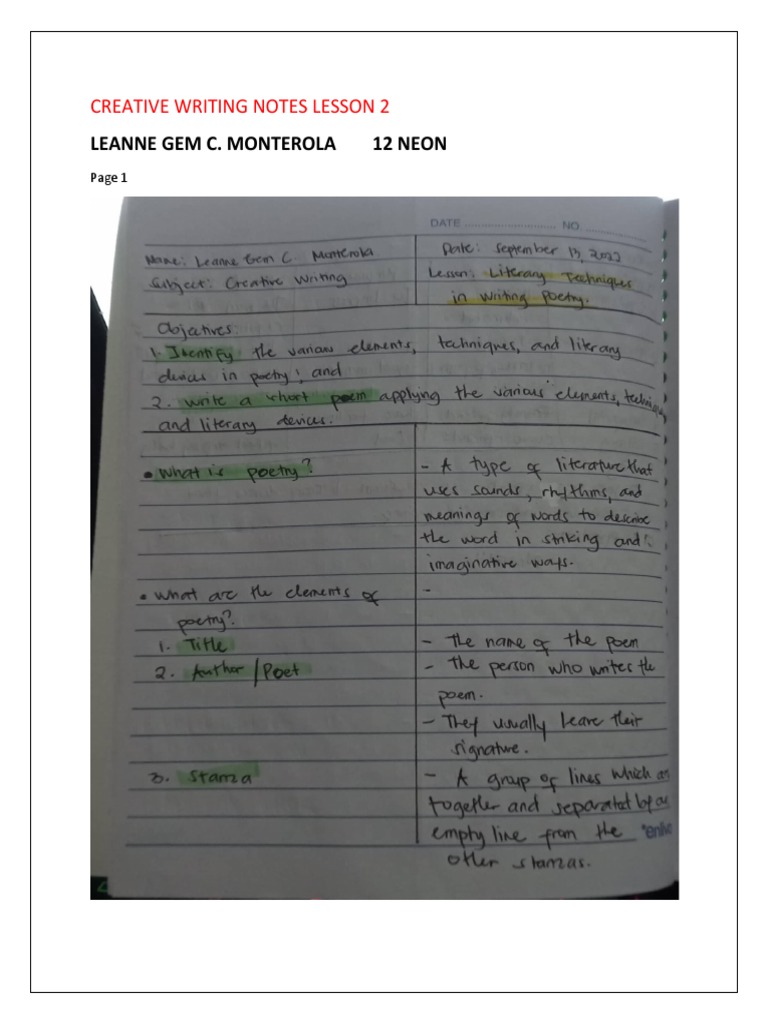 CREATIVE WRITING NOTES LESSON 2
LEANNE GEM C. MONTEROLA 12 NEON
Page 1
DATE ............................ NO. ............
Name: Leanne Gem C. Monterola
Subject: Creative Writing
Date: September 13, 2022
Lesson: Literary Techniques
in writing poetry.
Objectives
1. Identify the various elements, techniques, and literary
devices in poetry; and
2. write a short poem applying the various elements,
and literary devices.
• What is poetry?
- A type of literature that
uses sounds, rhythms, and
meanings of words to describe
the word in striking and
imaginative ways.
• What are the elements of
poetry?
-
1. Title
- The name of the poem
2. Author/Poet
- the person who writes the
poem.
- They usually leave their
signature.
3. Stanza
- A group of lines which
together and separated by
empty line from the
other stanzas.